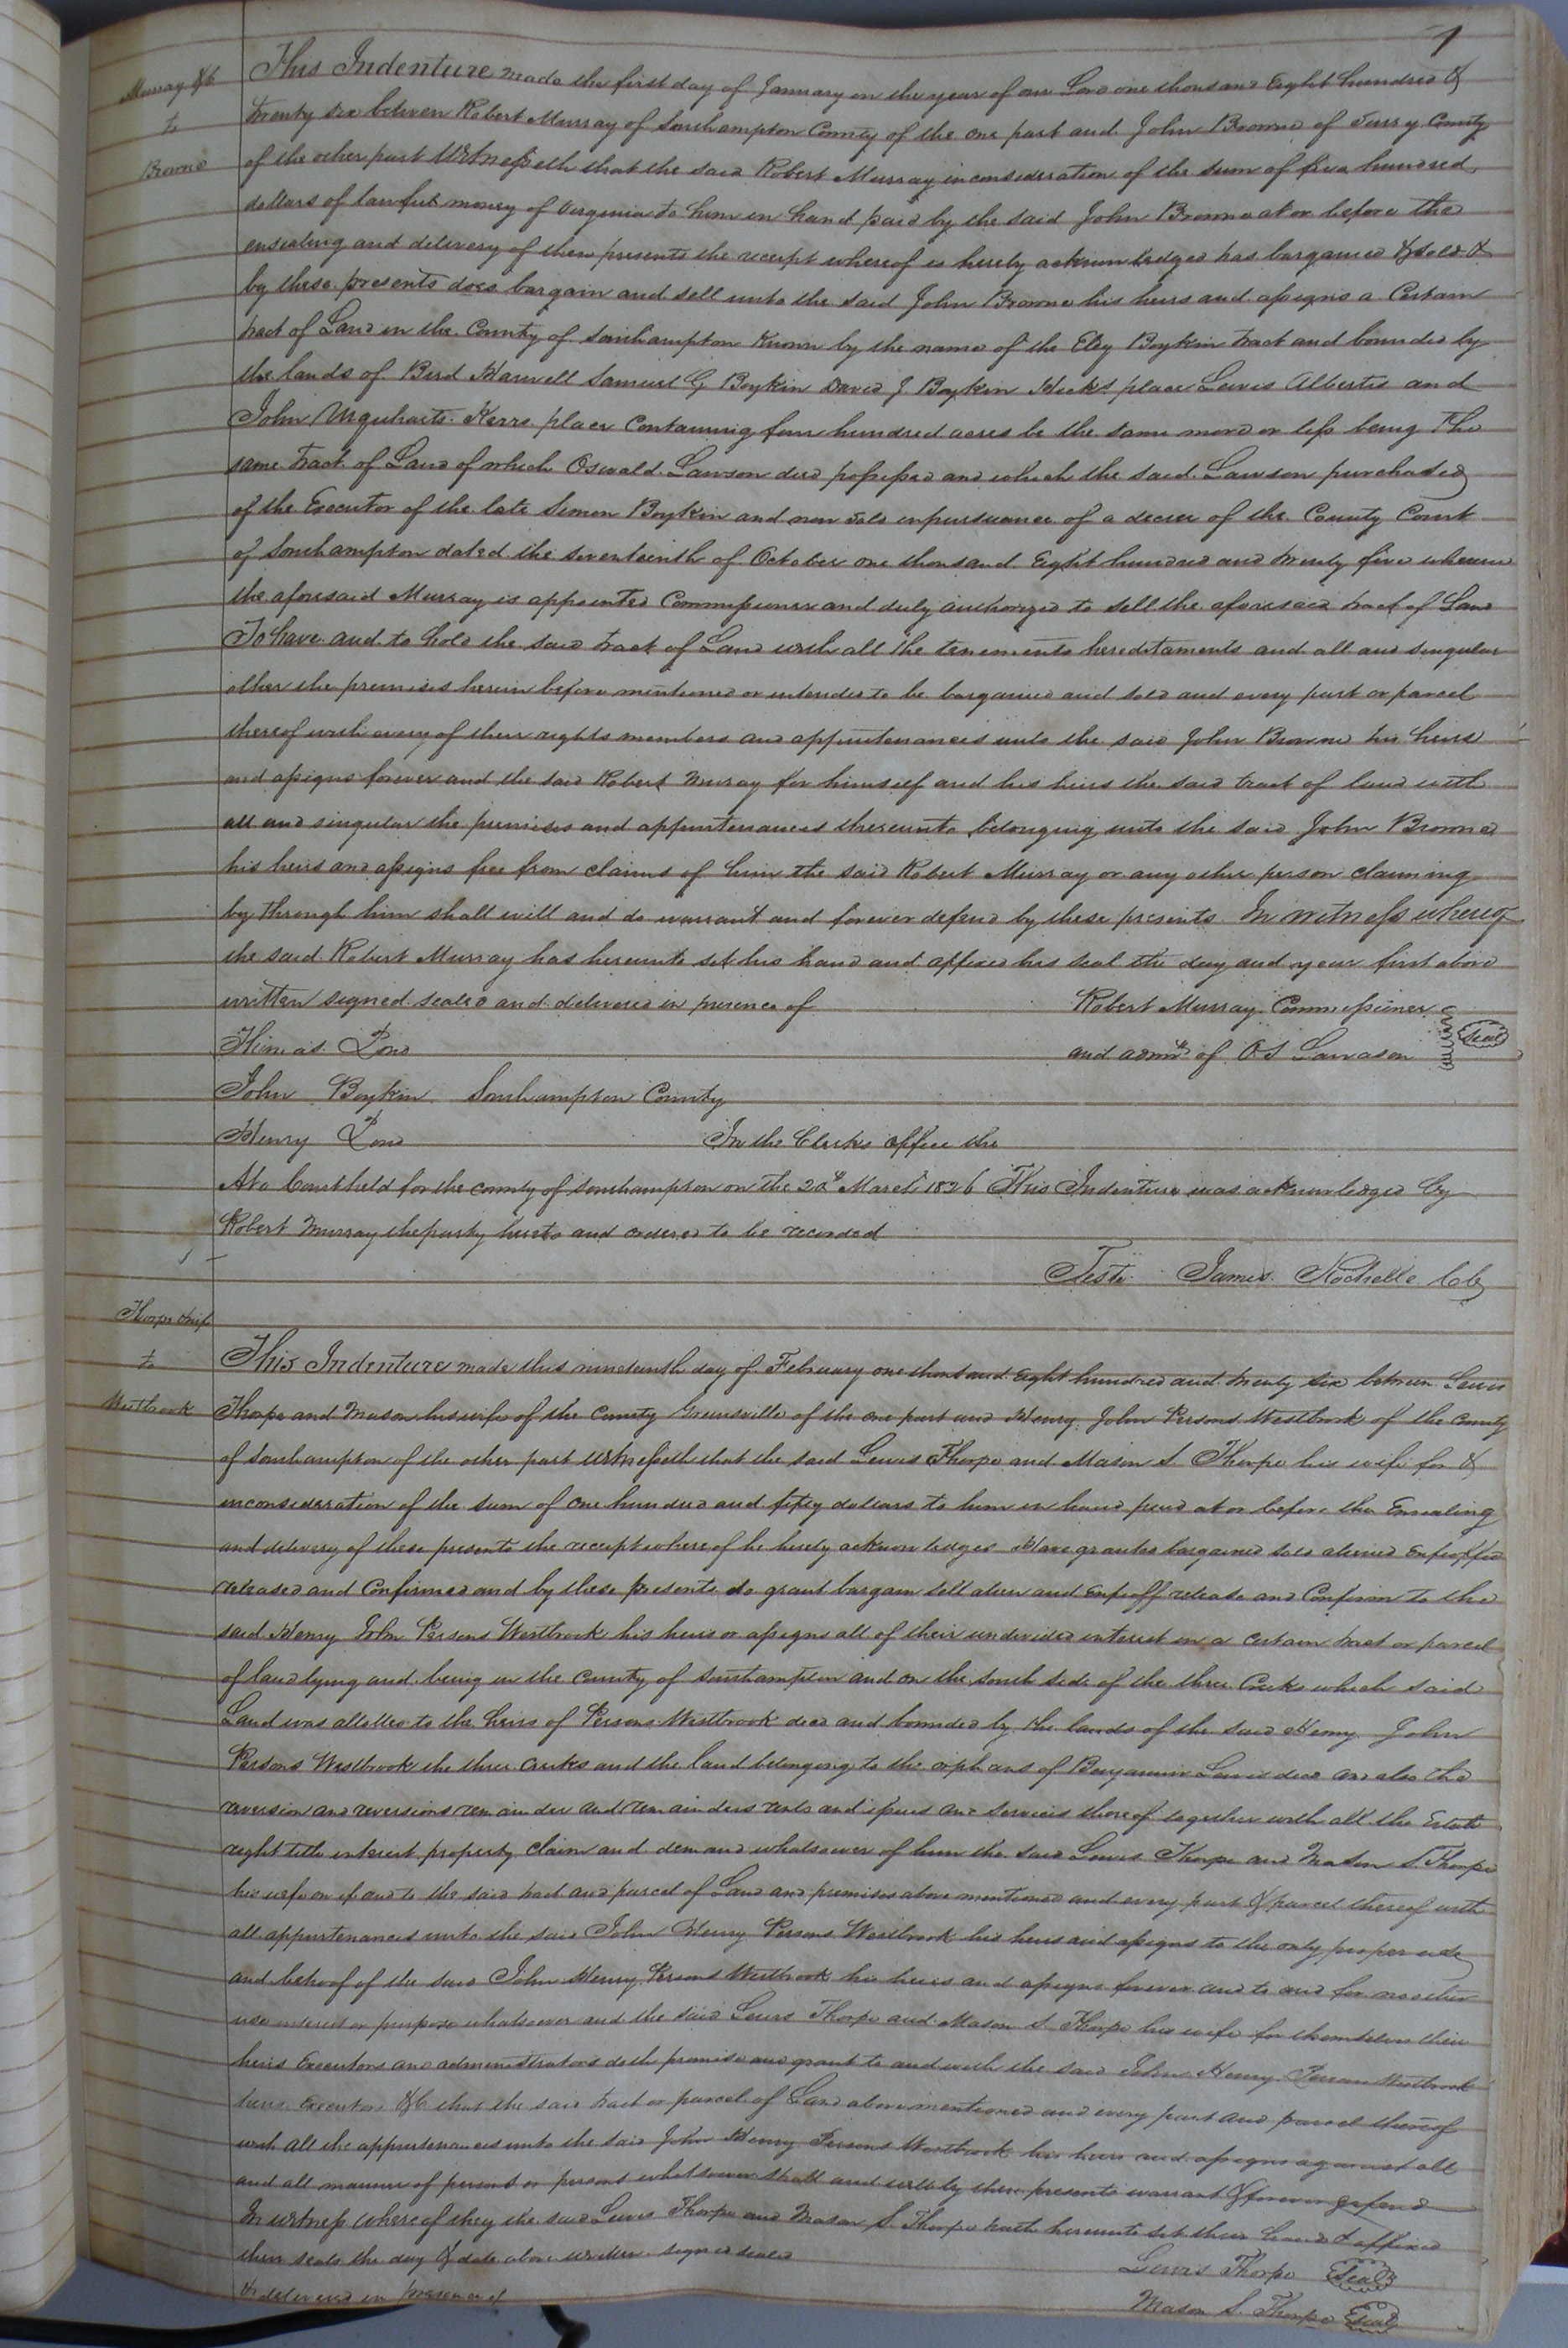 1
Murray &c
to
Browne
This Indenture made the first day of January in the year of our Lord one thousand Eight hundred &
twenty six between Robert Murray of Southampton County of the one part and John Browne of Surry County
of the other part Witnesseth that the said Robert Murray in consideration of the sum of five hundred
dollars of lawful money of Virginia to him in hand paid by the said John Browne at or before the
ensealing and delivery of these presents the receipt whereof is hereby acknowledged has bargained & sold &
by these presents does bargain and sell unto the said John Browne his heirs and assigns a Certain
tract of Land in the County of Southampton Known by the name of the Eley Boykin tract and bounded by
the lands of Bird Harwell Samuel G Boykin David J. Boykin Hicks place Lewis Alberties and
John Urquharts Kerrs place Containing four hundred acres be the same more or less being The
same tract of Land of which Oswald Lawson died possessed and which the said Lawson purchased
of the Executor of the late Simon Boykin and now sold in pursuance of a decree of the County Court
of Southampton dated the seventeenth of October one thousand Eight hundred and twenty five wherein
the aforesaid Murray is appointed Commissioner and duly authorized to sell the aforesaid tract of Land
To have and to hold the said tract of Land with all the tenements hereditaments and all and singular
other the premises herein before mentioned or intended to be bargained and sold and every part or parcel
thereof with every of their rights members and appurtenances unto the said John Browne his heirs
and assigns forever and the said Robert Murray for himself and his heirs the said tract of land with
all and singular the premises and appurtenances thereunto belonging unto the said John Browne
his heirs and assigns free from claims of him the said Robert Murray or any other person claiming
by through him shall will and do warrant and forever defend by these presents. In witness whereof
the said Robert Murray has hereunto set his hand and affixed his seal the day and year first above
written signed sealed and delivered in presence of Robert Murray Commissioner
Thomas Pond and admr of O S Lawson Seal
John Boykin Southampton County
Henry Pond In the Clerks office the
At a Court held for the county of Southampton on the 20th March 1826 This Indenture was acknowledged by
Robert Murray the party hereto and ordered to be recorded
Teste James Rochelle Clk
Thorpe & wife
to
Westbrook
This Indenture made this nineteenth day of February one thousand Eight hundred and twenty six between Lewis
Thorpe and Mason his wife of the County Greensville of the one part and Henry John Persons Westbrook of the County
of Southampton of the other part Witnesseth that the said Lewis Thorpe and Mason S. Thorpe his wife for &
inconsideration of the sum of one hundred and fifty dollars to him in hand paid at or before the Ensealing
and delivery of these presents the receipt whereof he hereby acknowledges Have granted bargained sold aliened Enfeoffed
released and Confirmed and by these presents do grant bargain sell alien and Enfeoff release and Confirm to the
said Henry John Persons Westbrook his heirs or assigns all of their undivided interest in a certain tract or parcel
of land lying and being in the County of Southampton and on the south side of the three Creeks which said
Land was allotted to the heirs of Persons Westbrook decd and bounded by the lands of the said Henry John
Persons Westbrook the three creeks and the land belonging to the orphans of Benjamin Lewis decd and also the
reversion and reversions remainder and remainders rents and issues and services thereof together with all the Estate
right title interest property claim and demand whatsoever of him the said Lewis Thorpe and Mason S. Thorpe
his wife on of and to the said tract and parcel of Land and premises above mentioned and every part & parcel thereof with
all appurtenances unto the said John Henry Persons Westbrook his heirs and assigns to the only proper use
and behoof of the said John Henry Persons Westbrook his heirs and assigns forever and to and for no other
use interest or purpose whatsoever and the said Lewis Thorpe and Mason S. Thorpe his wife for themselves their
heirs Executors and administrators doth promise and grant to and with the said John Henry Persons Westbrook
heirs Executors &c that the said tract or parcel of Land above mentioned and every part and parcel thereof
with all the appurtenances unto the said John Henry Persons Westbrook his heirs and assigns against all
and all manner of person or persons whatsoever shall and will by these presents warrant & forever defend
In witness whereof they the said Lewis Thorpe and Mason S. Thorpe hath hereunto set their hands & affixed
their seals the day & date above written signed sealed Lewis Thorpe Seal
& delivered in presence of Mason S. Thorpe Seal